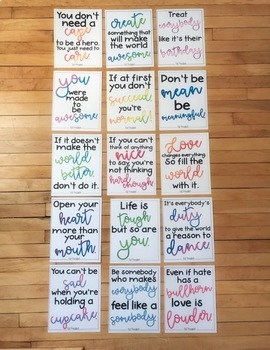 You don't
need a
cape
to be a hero.
You just need to
care
create
something that
will make the world
awesome
Treat
everybody
like it's their
birthday
you
were made
to be
awesome
If at first
you don't
succeed
you're
normal!
Don't be
mean
be
meaningful!
If it doesn't
make the
world
better
don't do it.
If you can't
think of anything
nice
to say you're
not thinking
hard enough
Love
changes everything
So fill the
world
with it.
Open your
heart
more than
your
mouth.
Life is
tough
but so are
you.
It's everybody's
duty
to give the world
a reason to
dance
You can't be
sad
when you're
holding a
cupcake.
Be somebody
who makes
everybody
feel like a
somebody
Even if hate
has a
bullhorn
love is
louder.